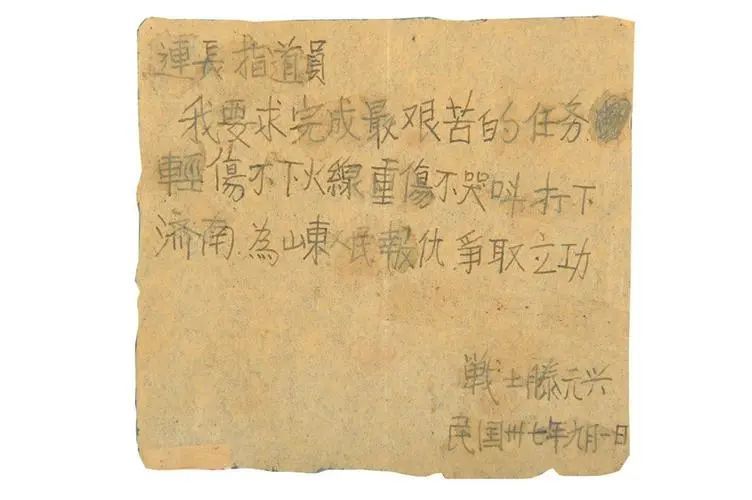 連長指道員
我要求完成最艰苦的任务
輕傷不下火線重傷不哭叫.打下
济南.為山東人民報仇.爭取立功
戦士滕元兴
民国卅七年九月一日